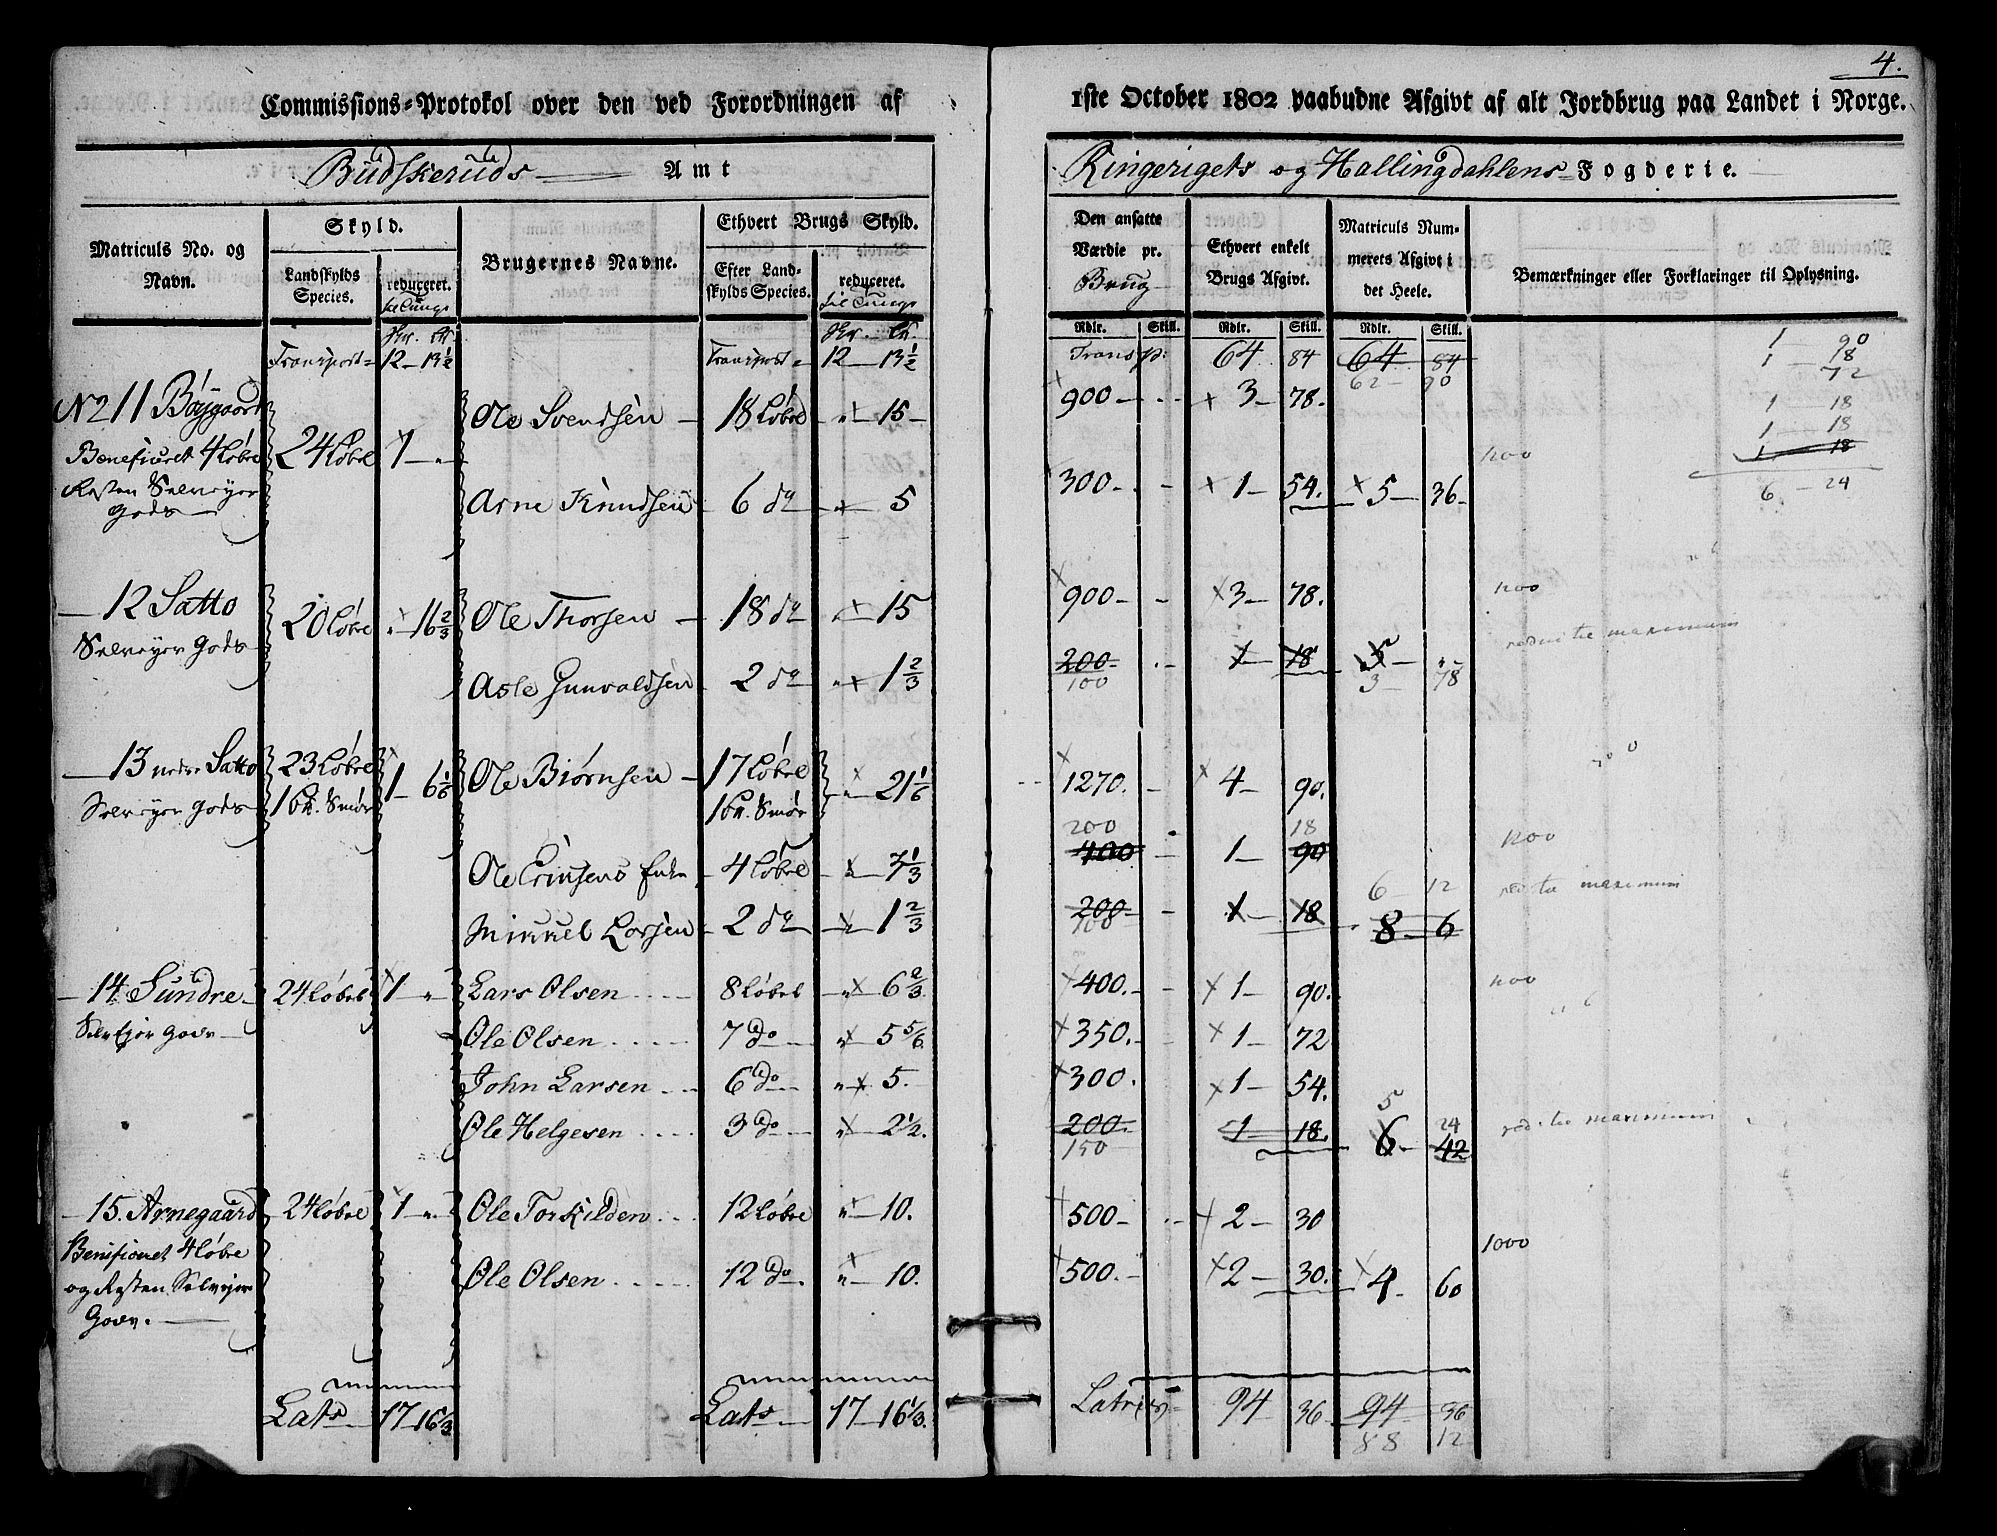 4.
Commissions-Protokol over den ved Forordningen af 1ste October 1802 paabudne Afgivt af alt Jordbrug paa Landet i Norge.
Budskeruds Amt
Ringerigets og Hallingdahlens Fogderie.
Matriculs No. og Navn.
Skyld.
Landskylds Species.
reduceret. til Tunge
Brugernes Navne.
Ethvert Brugs Skyld.
Efter Landskylds Species.
reduceret. til Tunge
Den ansatte Værdie pr. Brug
Ethvert enkelt Brugs Afgivt.
Matriculs Nummerets Afgivt i det Heele.
Bemærkninger eller Forklaringer til Oplysning.
Rdlr. Skill. Rdlr. Skill. Rdlr. Skill.
Transport 12 13 1/2 Transport 12 13 1/2 Transp: 64 84 64 84
62 - 90
1 90
1 18
72
1 - 18
1 - 18
1 18
6 - 24
No 11 Bøygaard Ole Svendsen 18 Løbe " 15 900 3 78.
Beneficeret 4 Løbe 24 Løbe 1 "
Resten Selveyer Gods Arne Knudsen 6 do " 5 300 1 54. 5 36
12 Satto 20 Løbe " 16 2/3 Ole Thorsen 18 do " 15 900 3 78.
Selveyer Gods Asle Gunvaldsen 2 do " 1 2/3 200 1 18 5 "
100 3 78
red: til maximum
13 nedre Satto 23 Løbe 1 6 1/6 Ole Biørnsen 17 Løbe " 21 1/6 1270. 4 90.
Selveyer Gods 1 Bk. Smør 1 Bk. Smør
200 18
Ole Erichsens Enke 4 Løbe " 3 1/3 400 1 90
6 12
Mikkel Larsen 2 do " 1 2/3 200 1 18 8 6
100
red til maximum
14 Sundre 24 Løbe 1 " Lars Olsen 8 Løbe " 6 2/3 400. 1 90.
Selveyer Gods Ole Olsen 7 do " 5 5/6 350. 1 72
John Larsen 6 do " 5. 300. 1 54.
5 24
Ole Helgesen 3 do " 2 1/2. 200. 1 18. 6 42
150
red: til maximum
15. Arnegaard 24 Løbe 1 " Ole Torkilden 12 Løbe " 10. 500 2 30
Benificeret 4 Løbe
1000
og Resten Selveyer Gods. Ole Olsen 12 do. " 10. 500. 2 30. 4 60
Lats 17 16 1/3 Lats 17 16 1/3. Latris 94 36 94 36
88 12